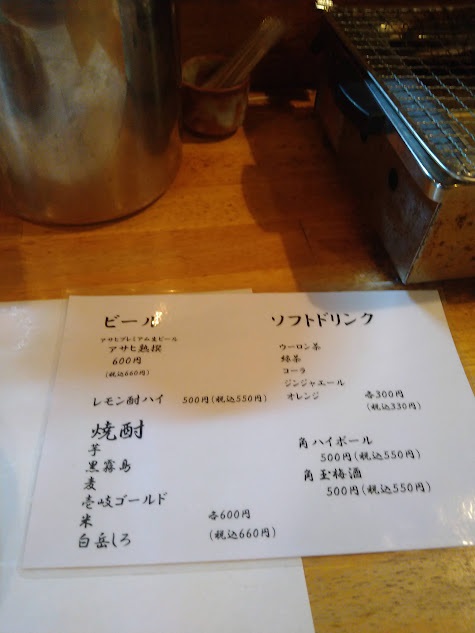 ビール
アサヒプレミアム生ビール
アサヒ熟撰
600円
(税込660円)
レモン酎ハイ 500円(税込550円)
焼酎
芋
黒霧島
麦
壱岐ゴールド
米 各600円
白岳しろ (税込660円)
ソフトドリンク
ウーロン茶
緑茶
コーラ
ジンジャエール
オレンジ 各300円
(税込330円)
角ハイボール
500円(税込550円)
角玉梅酒
500円(税込550円)